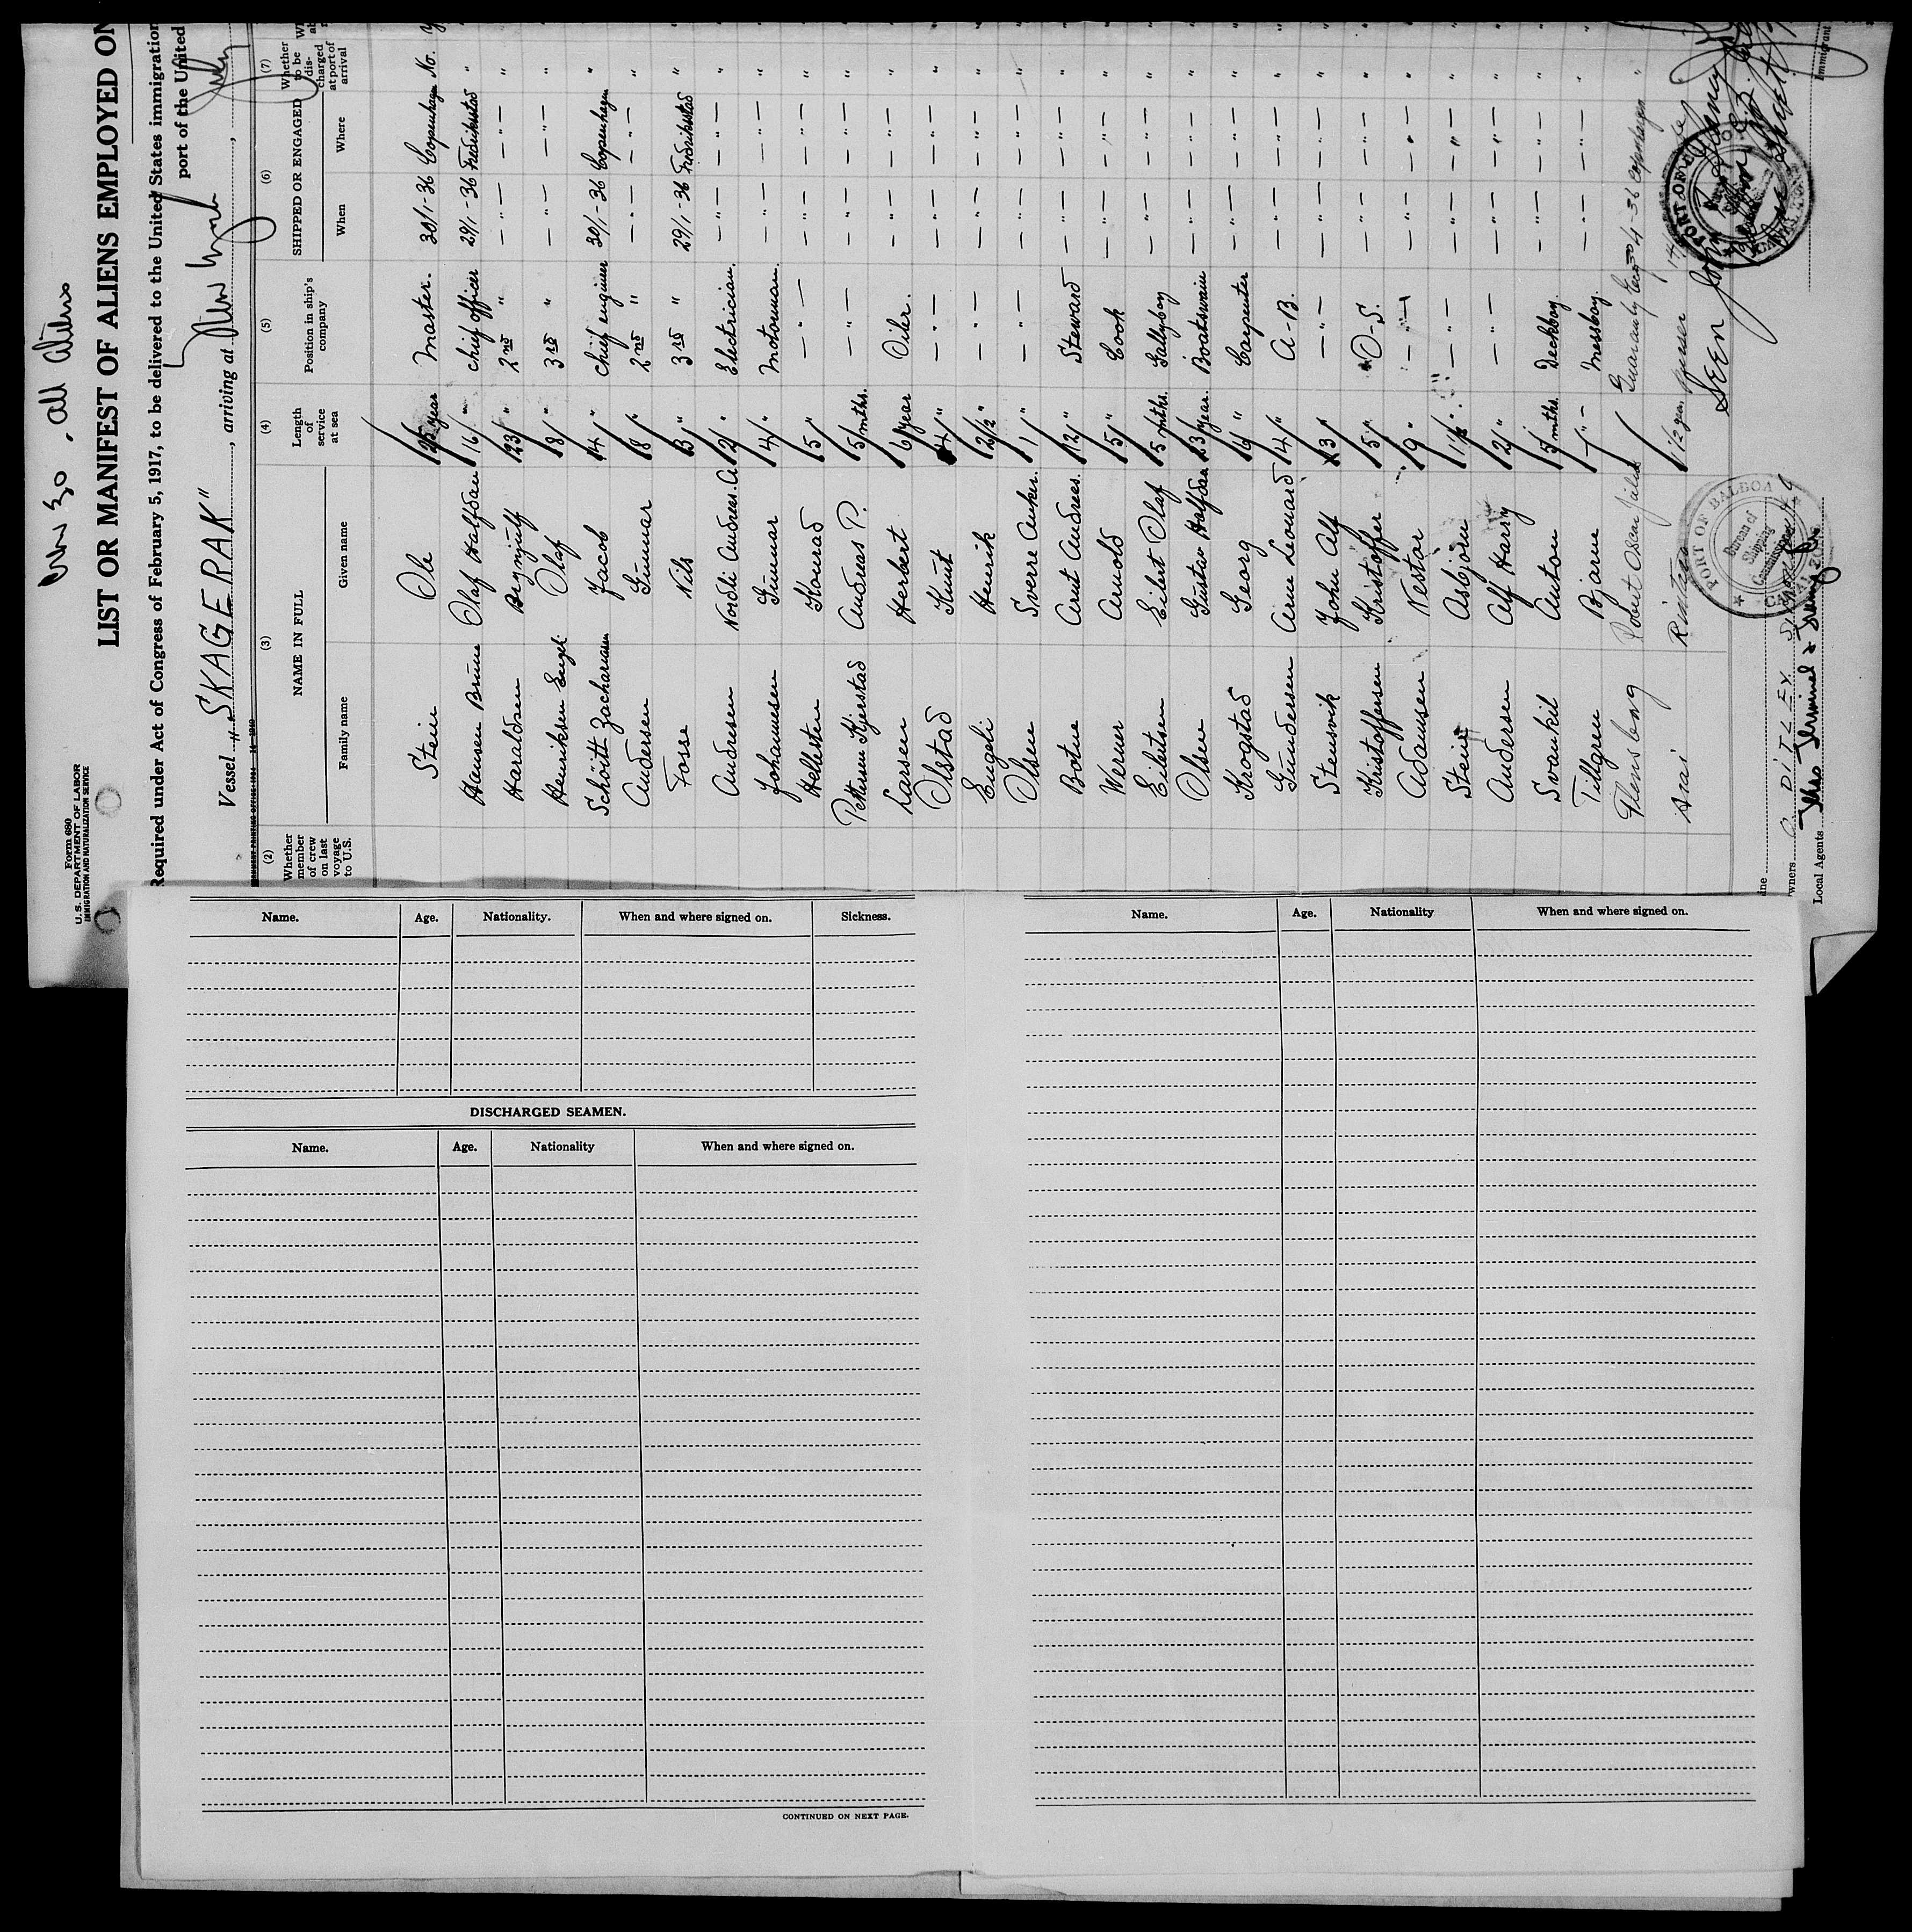 Chr 30 - all aliens
Form 680
U. S. DEPARTMENT OF LABOR
IMMIGRATION AND NATURALIZATION SERVICE
LIST OR MANIFEST OF ALIENS EMPLOYED ON
Required under Act of Congress of February 5, 1917, to be delivered to the United States immigration
port of the United
Vessel "SKAGERAK", arriving at New York, July
(2) (3) (4) (5) (6) (7)
Whether member of crew on last voyage to U.S. NAME IN FULL Length of service at sea Position in ship's company SHIPPED OR ENGAGED Whether to be discharged at port of arrival
Family name Given name When Where
Stein Ole 25 year Master. 30/1-36 Copenhagen No.
Hansen Bruun Olaf Halfdan 16 " Chief officer 29/1-36 Fredrikstad "
Haraldsen Brynjulf 23 " 2nd " — " — — " — "
Henriksen Engh Olaf 18 " 3rd " — " — — " — "
Schöitt Zachariasen Jacob 14 " Chief engineer 30/1-36 Copenhagen "
Andersen Gunnar 18 " 2nd " — " — — " — "
Fosse Nils 13 " 3rd " 29/1-36 Fredrikstad "
Andresen Nordli Andreas. A 12 " Electrician. — " — — " — "
Johannesen Gunnar 14 " Motorman. — " — — " — "
Hellesten Konrad 15 " — " — — " — — " — "
Pettersen Kjerstad Andreas P. 5 mths. — " — — " — — " — "
Larsen Herbert 6 year Oiler. — " — — " — "
Olstad Knut 4 " — " — — " — — " — "
Engeli Henrik 2 1/2 " — " — — " — — " — "
Olsen Sverre Anker. 1 " — " — — " — — " — "
Botne Arnt Andreas. 12 " Steward — " — — " — "
Werner Arnold 5 " Cook — " — — " — "
Eilertsen Eilert Olaf 5 mths. Galleyboy — " — — " — "
Olsen Gustav Halfdan 23 year. Boatswain — " — — " — "
Krogstad Georg 16 " Carpenter — " — — " — "
Gundersen Arne Leonard 4 " A-B. — " — — " — "
Stensvik John Alf 3 " — " — — " — — " — "
Kristoffersen Kristoffer 5 " O-S. — " — — " — "
Adamsen Nestor 9 " — " — — " — — " — "
Stein Asbjörn 1 1/2 " — " — — " — — " — "
Andersen Alf Harry 2 " — " — — " — — " — "
Svankil Anton 5 mths. Deckboy. — " — — " — "
Tillgren Bjarne 7 " Messboy. — " — — " — "
Flensborg Robert Oscar Guaranty 4-36 Copenhagen "
Arai 1 1/2 year
SEEN
PORT OF BALBOA
Bureau of Shipping Commissioner
CANAL ZONE
Owners
Local Agents Terminal &
Immigrant
Name. Age. Nationality. When and where signed on. Sickness.
DISCHARGED SEAMEN.
Name. Age. Nationality When and where signed on.
CONTINUED ON NEXT PAGE.
Name. Age. Nationality When and where signed on.